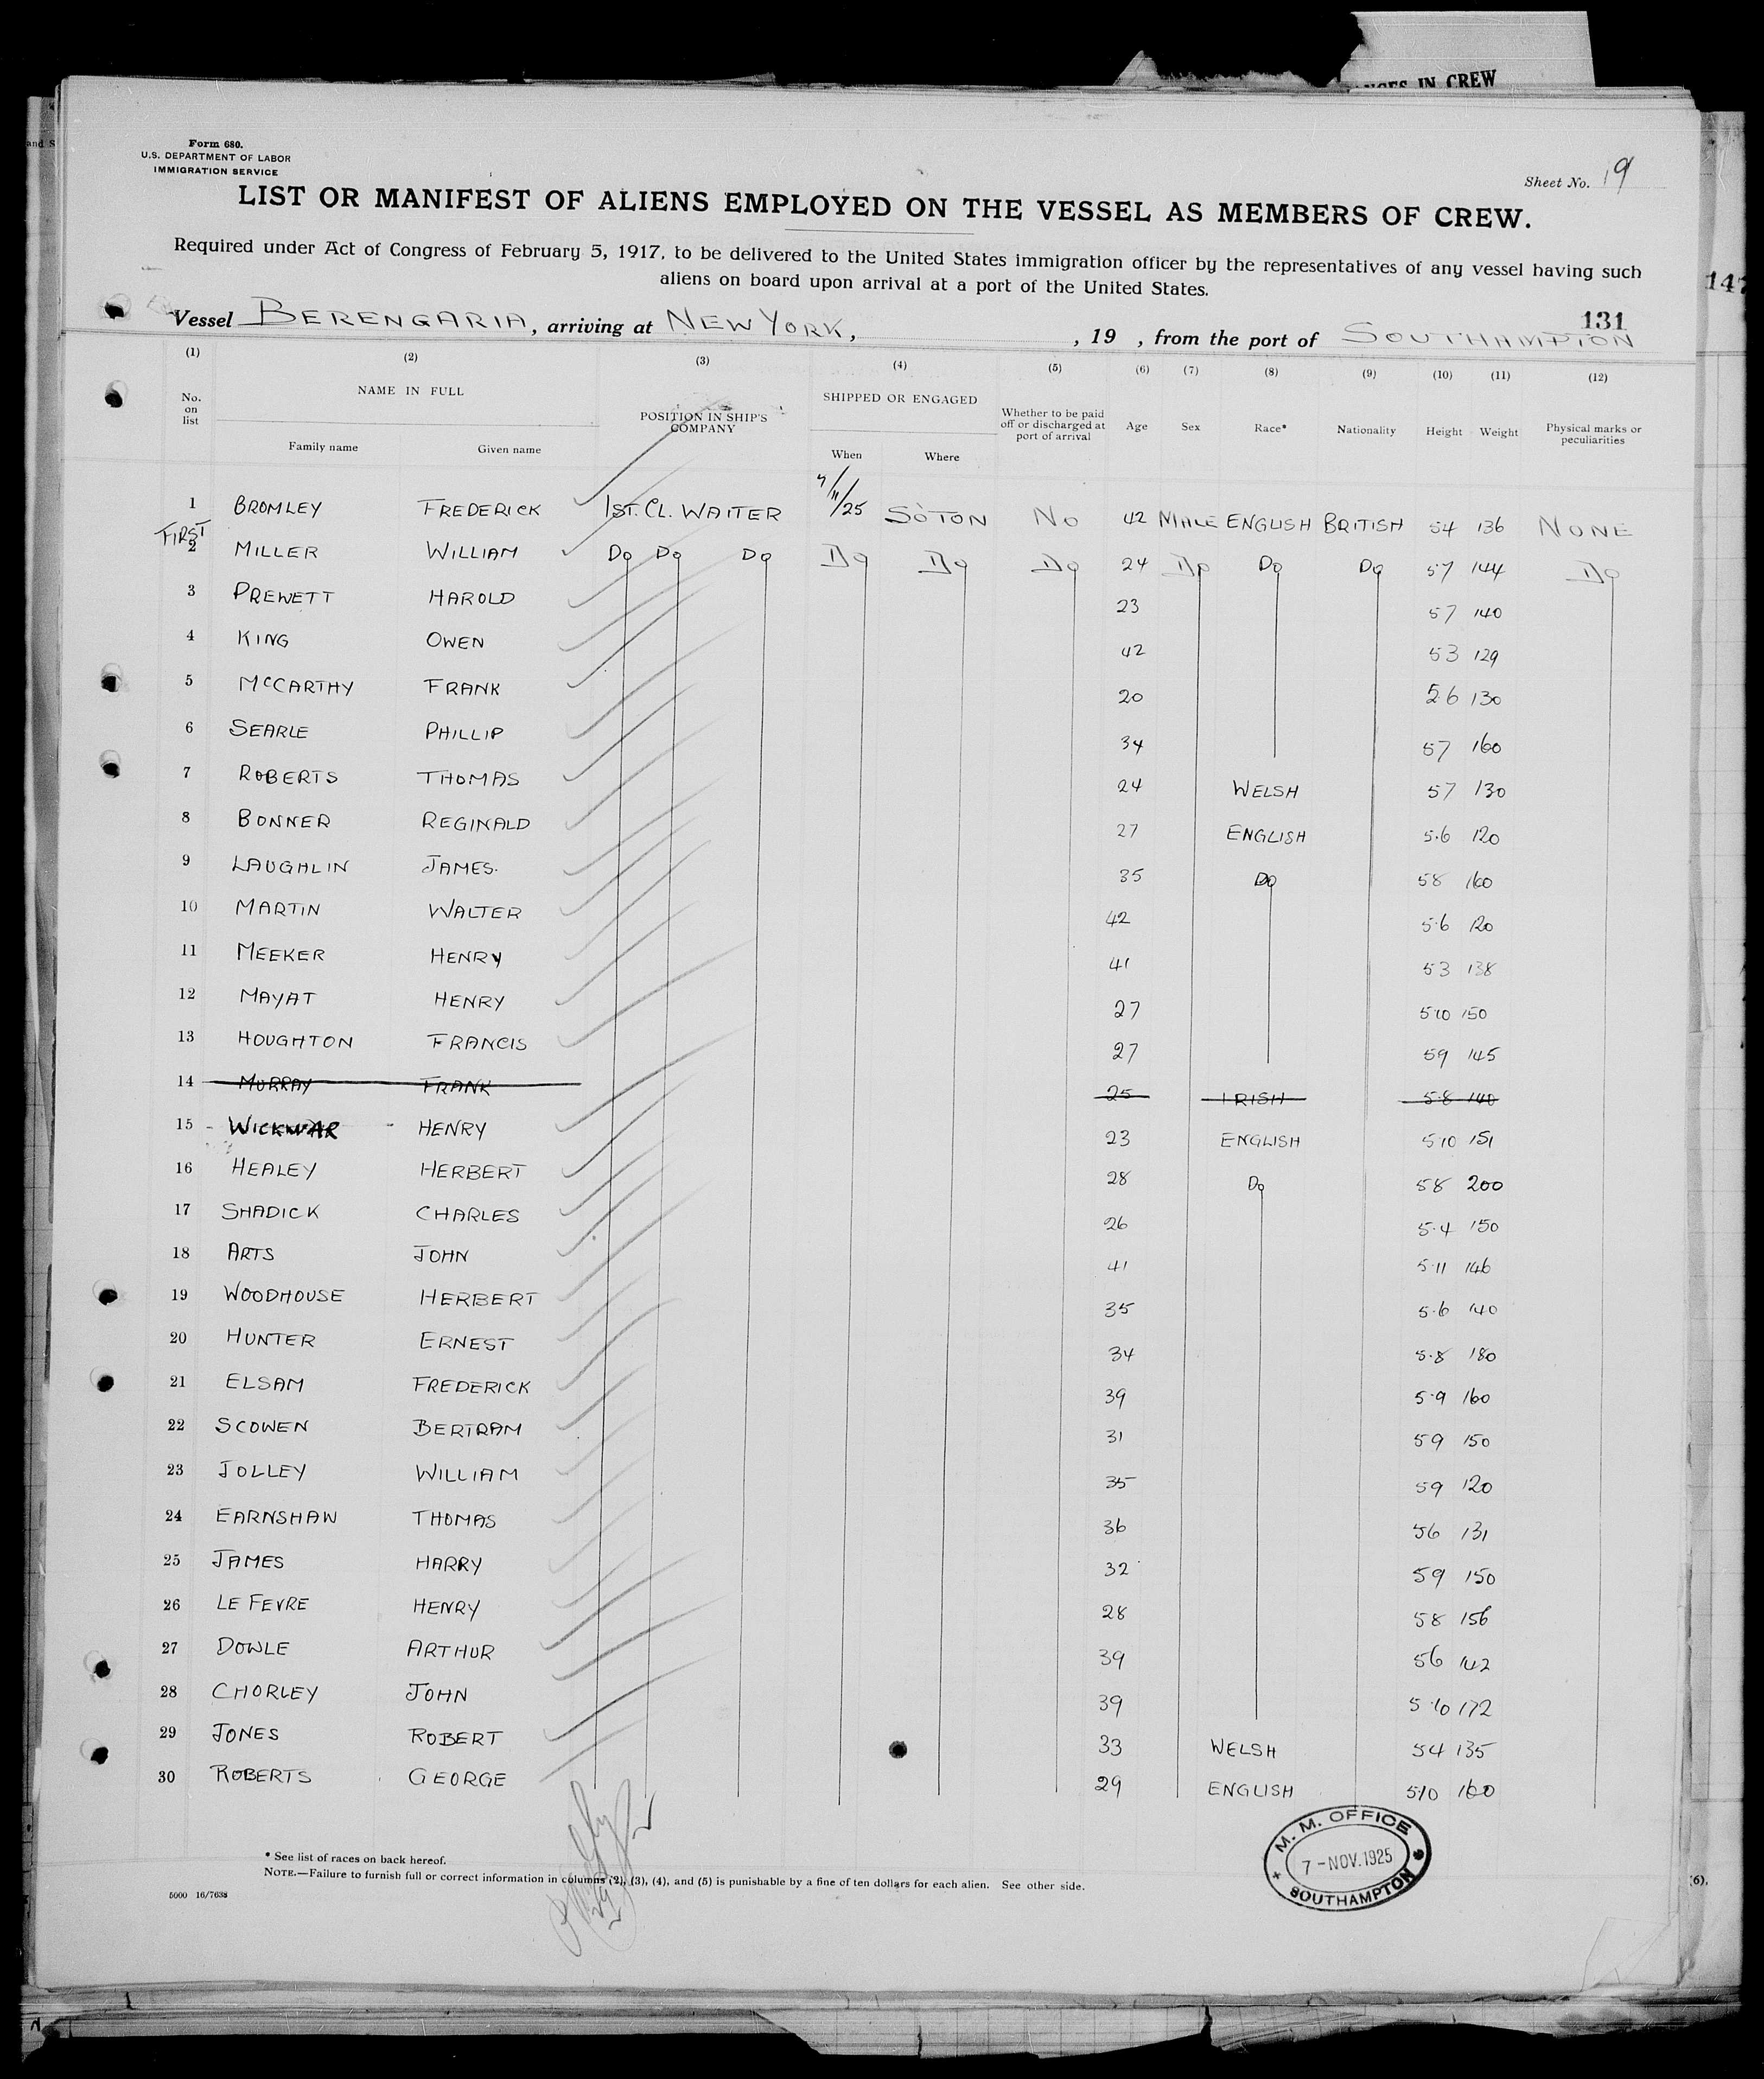 ANGES IN CREW
and S
Form 680.
U.S. DEPARTMENT OF LABOR
IMMIGRATION SERVICE
Sheet No. 19
LIST OR MANIFEST OF ALIENS EMPLOYED ON THE VESSEL AS MEMBERS OF CREW.
Required under Act of Congress of February 5, 1917, to be delivered to the United States immigration officer by the representatives of any vessel having such
aliens on board upon arrival at a port of the United States.
147
131
Vessel BERENGARIA, arriving at NEW YORK, , 19 , from the port of SOUTHAMPTON
(1) (2) (3) (4) (5) (6) (7) (8) (9) (10) (11) (12)
No. on list NAME IN FULL POSITION IN SHIP'S COMPANY SHIPPED OR ENGAGED Whether to be paid off or discharged at port of arrival Age Sex Race* Nationality Height Weight Physical marks or peculiarities
Family name Given name When Where
1 BROMLEY FREDERICK 1ST. CL. WAITER 7/11/25 SOTON NO 42 MALE ENGLISH BRITISH 54 136 NONE
FIRST
2 MILLER WILLIAM Do Do Do Do Do Do 24 Do Do Do 57 144 Do
3 PREWETT HAROLD 23 57 140
4 KING OWEN 42 53 129
5 McCARTHY FRANK 20 5.6 130
6 SEARLE PHILLIP 34 57 160
7 ROBERTS THOMAS 24 WELSH 57 130
8 BONNER REGINALD 27 ENGLISH 5.6 120
9 LAUGHLIN JAMES. 35 Do 58 160
10 MARTIN WALTER 42 5.6 120
11 MEEKER HENRY 41 53 138
12 MAYAT HENRY 27 5.10 150
13 HOUGHTON FRANCIS 27 59 145
14 MURRAY FRANK 25 IRISH 5.8 140
15 - WICKWAR - HENRY 23 ENGLISH 5.10 151
16 HEALEY HERBERT 28 Do 58 200
17 SHADICK CHARLES 26 5.4 150
18 ARTS JOHN 41 5.11 146
19 WOODHOUSE HERBERT 35 5.6 140
20 HUNTER ERNEST 34 5.8 180
21 ELSAM FREDERICK 39 5.9 160
22 SCOWEN BERTRAM 31 59 150
23 JOLLEY WILLIAM 35 59 120
24 EARNSHAW THOMAS 36 56 131
25 JAMES HARRY 32 59 150
26 LE FEVRE HENRY 28 58 156
27 DOWLE ARTHUR 39 56 142
28 CHORLEY JOHN 39 5.10 172
29 JONES ROBERT 33 WELSH 54 135
30 ROBERTS GEORGE 29 ENGLISH 5/10 160
M. M. OFFICE
7 - NOV. 1925
SOUTHAMPTON
* See list of races on back hereof.
NOTE.—Failure to furnish full or correct information in columns (2), (3), (4), and (5) is punishable by a fine of ten dollars for each alien. See other side.
(6).
5000 16/7638